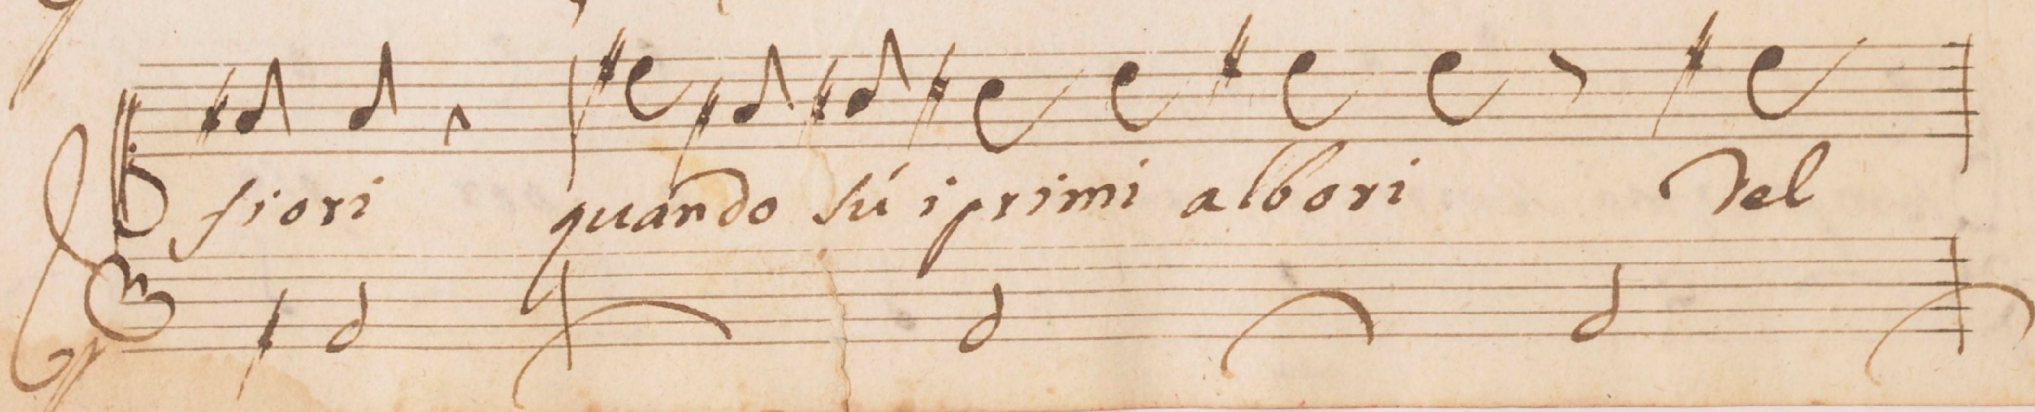 fiori quando sú i primi albori Del